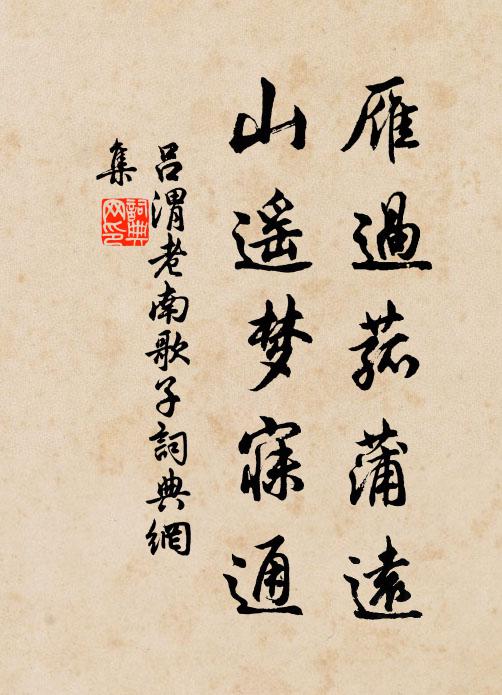 雁過菰蒲遠
山遥梦寐通
吕渭老南歌子詞典網
集
詞典
网印